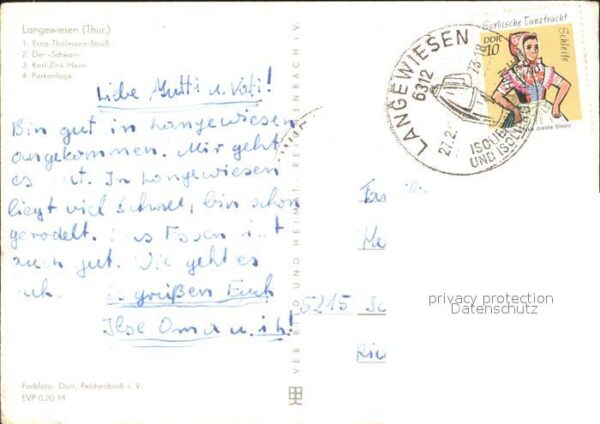 Langewiesen (Thür.)
1. Ernst-Thälmann-Straße
2. Der »Schwan«
3. Karl-Zink-Heim
4. Parkanlage
Liebe Mutti u. Vati!
Bin gut in Langewiesen
angekommen. Mir geht
es gut. In Langewiesen
liegt viel Schnee, bin schon
gerodelt. Das Essen ist
auch gut. Wie geht es
Euch.
Es grüßen Euch
Ilse Oma u. ich!
Farbfoto: Darr, Reichenbach i. V.
EVP 0,20 M
VEB BILD UND HEIMAT REICHENBACH i. V.
LANGEWIESEN
6312
ISOLIER
UND
Sorbische Tanztracht
DDR
10
Schleife
5215
privacy protection
Datenschutz